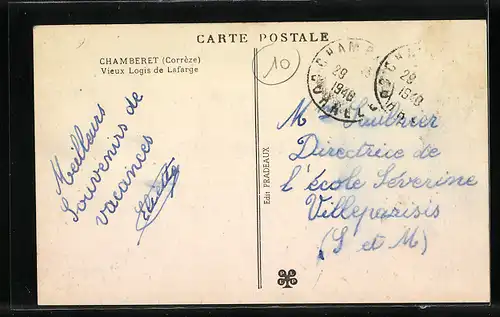 CARTE POSTALE
CHAMBERET (Corrèze)
Vieux Logis de Lafarge
10
Meilleurs
Souvenirs de
vacances
Edit PRADEAUX
CHAMB
28
1948
28
1948
M
Directrice de
l'école Séverine
Villeparisis
(S et M)